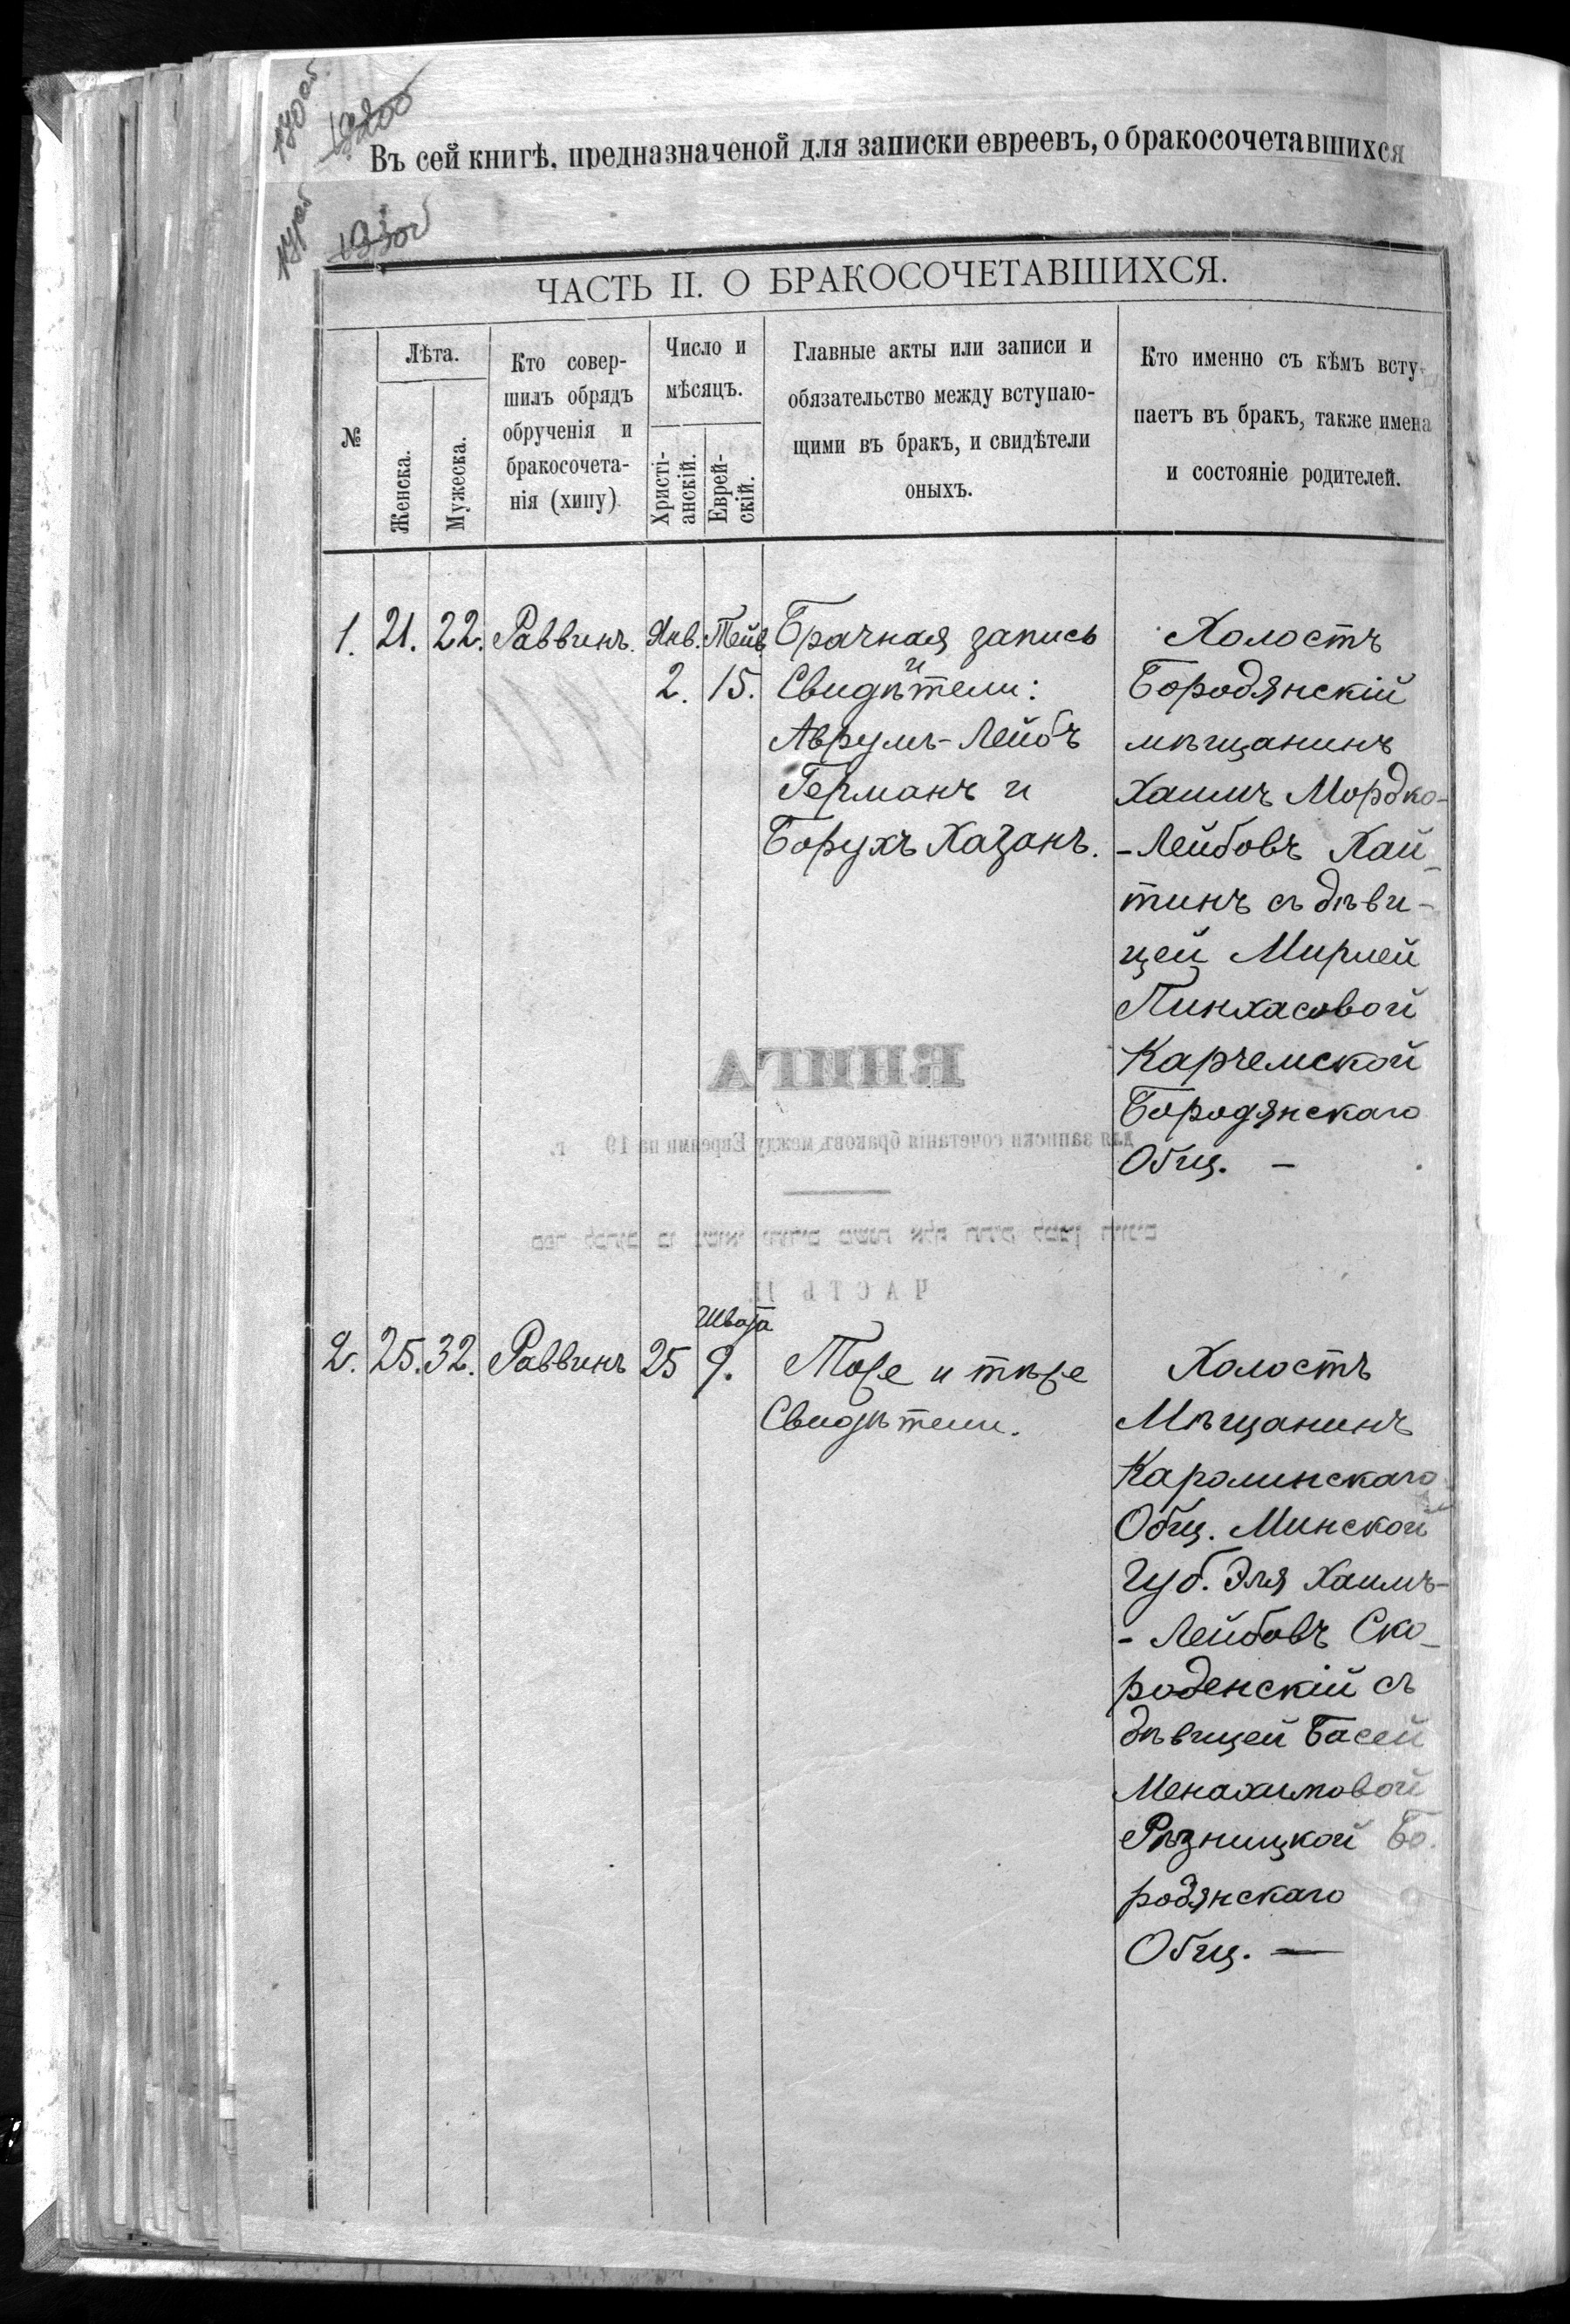 170об
Въ сей книгѣ, предназначеной для записки евреевъ, о бракосочетавшихся
ЧАСТЬ II. О БРАКОСОЧЕТАВШИХСЯ.
№
Лѣта.
Женска.
Мужеска.
Кто совер-
шилъ обрядъ
обрученія и
бракосочета-
нія (хипу)
Число и
мѣсяцъ.
Христі-
анскій.
Еврей-
скій.
Главные акты или записи и
обязательство между вступаю-
щими въ бракъ, и свидѣтели
оныхъ.
Кто именно съ кѣмъ всту-
паетъ въ бракъ, также имена
и состояніе родителей.
1. 21. 22. Раввинъ. Янв. Тейв.
2. 15.
Брачная запись
и
Свидѣтели:
Аврумъ-Лейбъ
Германъ и
Борухъ Хазанъ.
Холостъ
Бородянскій
мѣщанинъ
Хаимъ Мордко-
-Лейбовъ Хай-
тинъ съ дѣви-
цей Мирлей
Пинхасовой
Карчемской
Бородянскаго
Общ. -
КНИГА
для записки сочетанія браковъ между Евреями на 19 г.
ЧАСТЬ II.
2. 25. 32. Раввинъ 25
Швата
9.
Тоже и тѣже
Свидѣтели.
Холостъ
Мѣщанинъ
Каролинскаго
Общ. Минской
Губ. Эля Хаимъ-
- Лейбовъ Ско-
роденскій съ
дѣвицей Басей
Менахимовой
Рѣзницкой Бо-
родянскаго
Общ. —